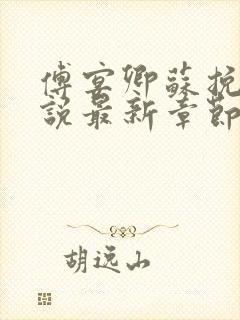 傅宴卿蘇挽
說最新章節
胡远山